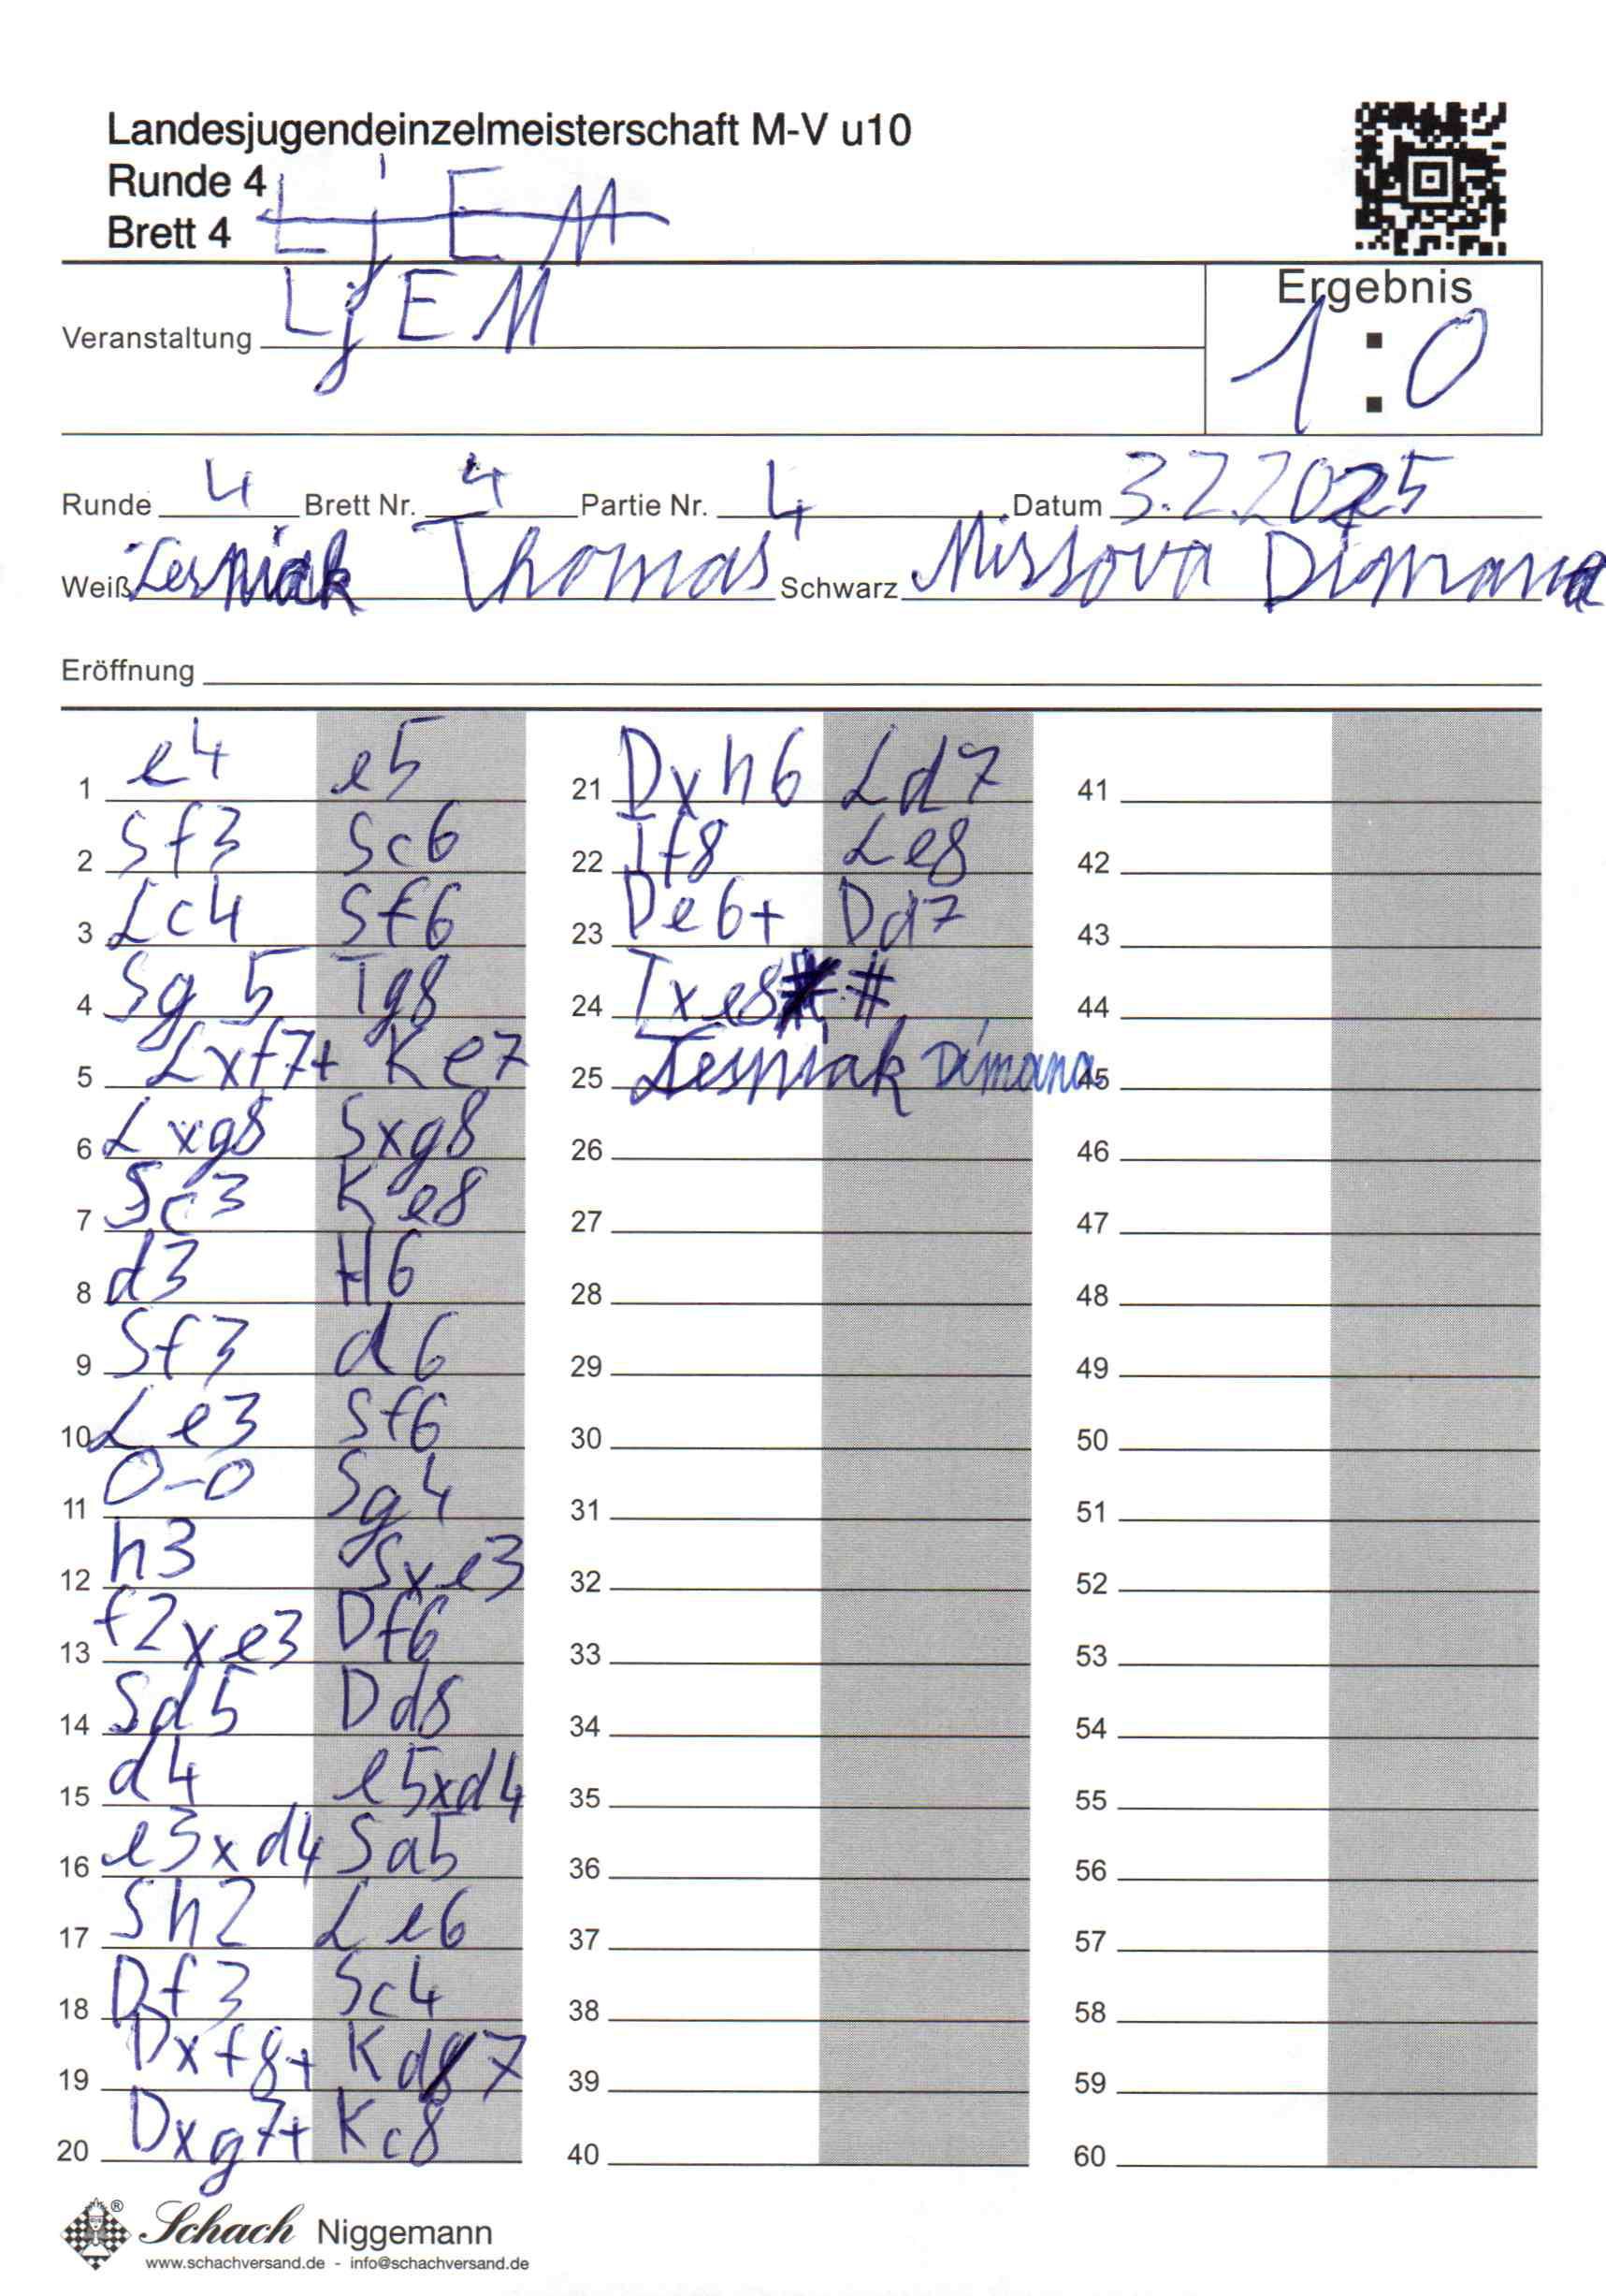 Landesjugendeinzelmeisterschaft M-V u10
Runde 4
Brett 4 LjEM
Ergebnis
Veranstaltung LjEM
1 : 0
Runde 4 Brett Nr. 4 Partie Nr. 4 Datum 3.2.2025
Weiß Lesniak Thomas Schwarz Missova Dimana
Eröffnung
1 e4 e5 21 Dxh6 Ld7 41
2 Sf3 Sc6 22 Tf8 Le8 42
3 Lc4 Sf6 23 De6+ Dd7 43
4 Sg5 Tg8 24 Txe8# # 44
5 Lxf7+ Ke7 25 Lesniak Dimana 45
6 Lxg8 Sxg8 26 46
7 Sc3 Ke8 27 47
8 d3 H6 28 48
9 Sf3 d6 29 49
10 Le3 Sf6 30 50
11 0-0 Sg4 31 51
12 h3 Sxe3 32 52
13 f2xe3 Df6 33 53
14 Sd5 Dd8 34 54
15 d4 e5xd4 35 55
16 e3xd4 Sa5 36 56
17 Sh2 Le6 37 57
18 Df3 Sc4 38 58
19 Dxf8+ Kd7 39 59
20 Dxg7+ Kc8 40 60
Schach Niggemann
www.schachversand.de - info@schachversand.de